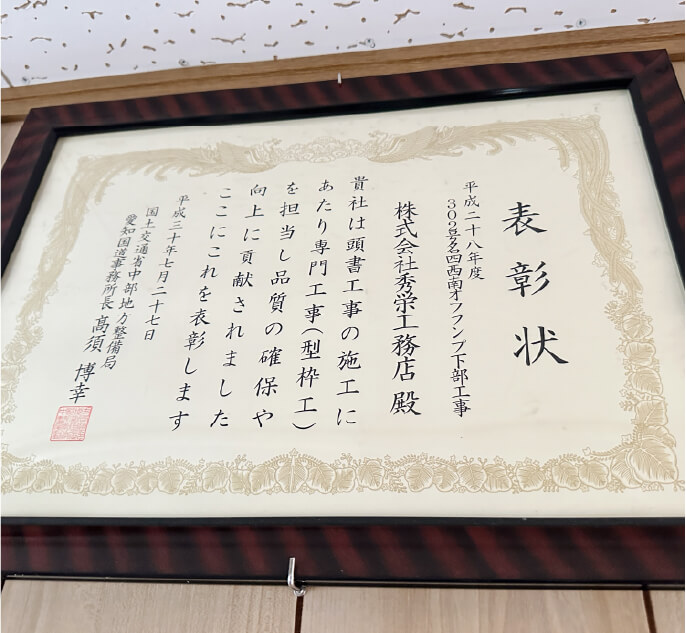 表彰状
平成二十八年度
302号名四西南オフランプ下部工事
株式会社秀栄工務店 殿
貴社は頭書工事の施工に
あたり専門工事(型枠工)
を担当し品質の確保や
向上に貢献されました
ここにこれを表彰します
平成三十年七月二十七日
国土交通省中部地方整備局
愛知国道事務所長 髙須 博幸